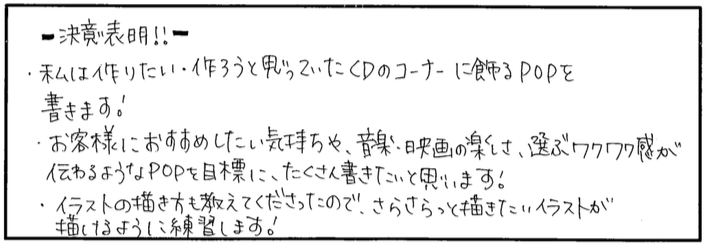 ー決意表明!!ー
・私は作りたい・作ろうと思っていたCDのコーナーに飾るPOPを
書きます!
・お客様におすすめしたい気持ちや、音楽・映画の楽しさ、選ぶワクワク感が
伝わるようなPOPを目標に、たくさん書きたいと思います!
・イラストの描き方も教えてくださったので、さらさらっと描きたいイラストが
描けるように練習します!